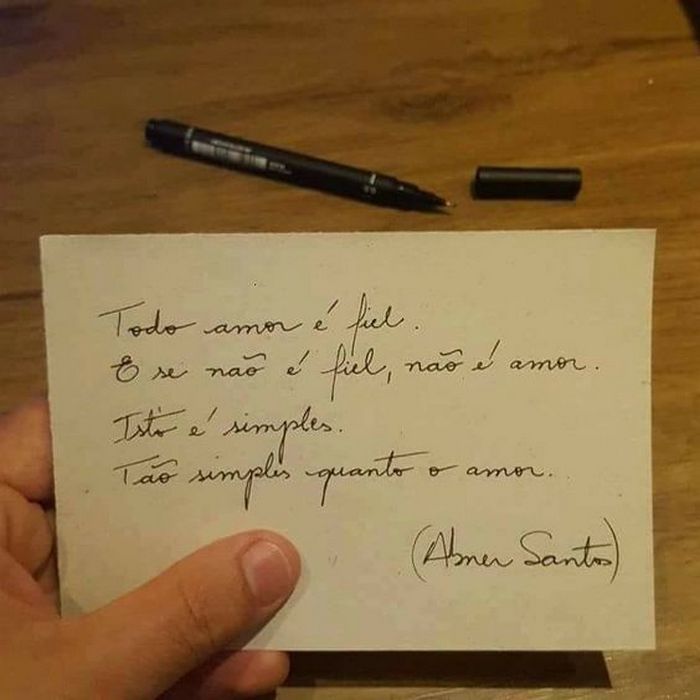 Todo amor é fiel.
E se não é fiel, não é amor.
Isto é simples.
Tão simples quanto o amor.
(Abner Santos)